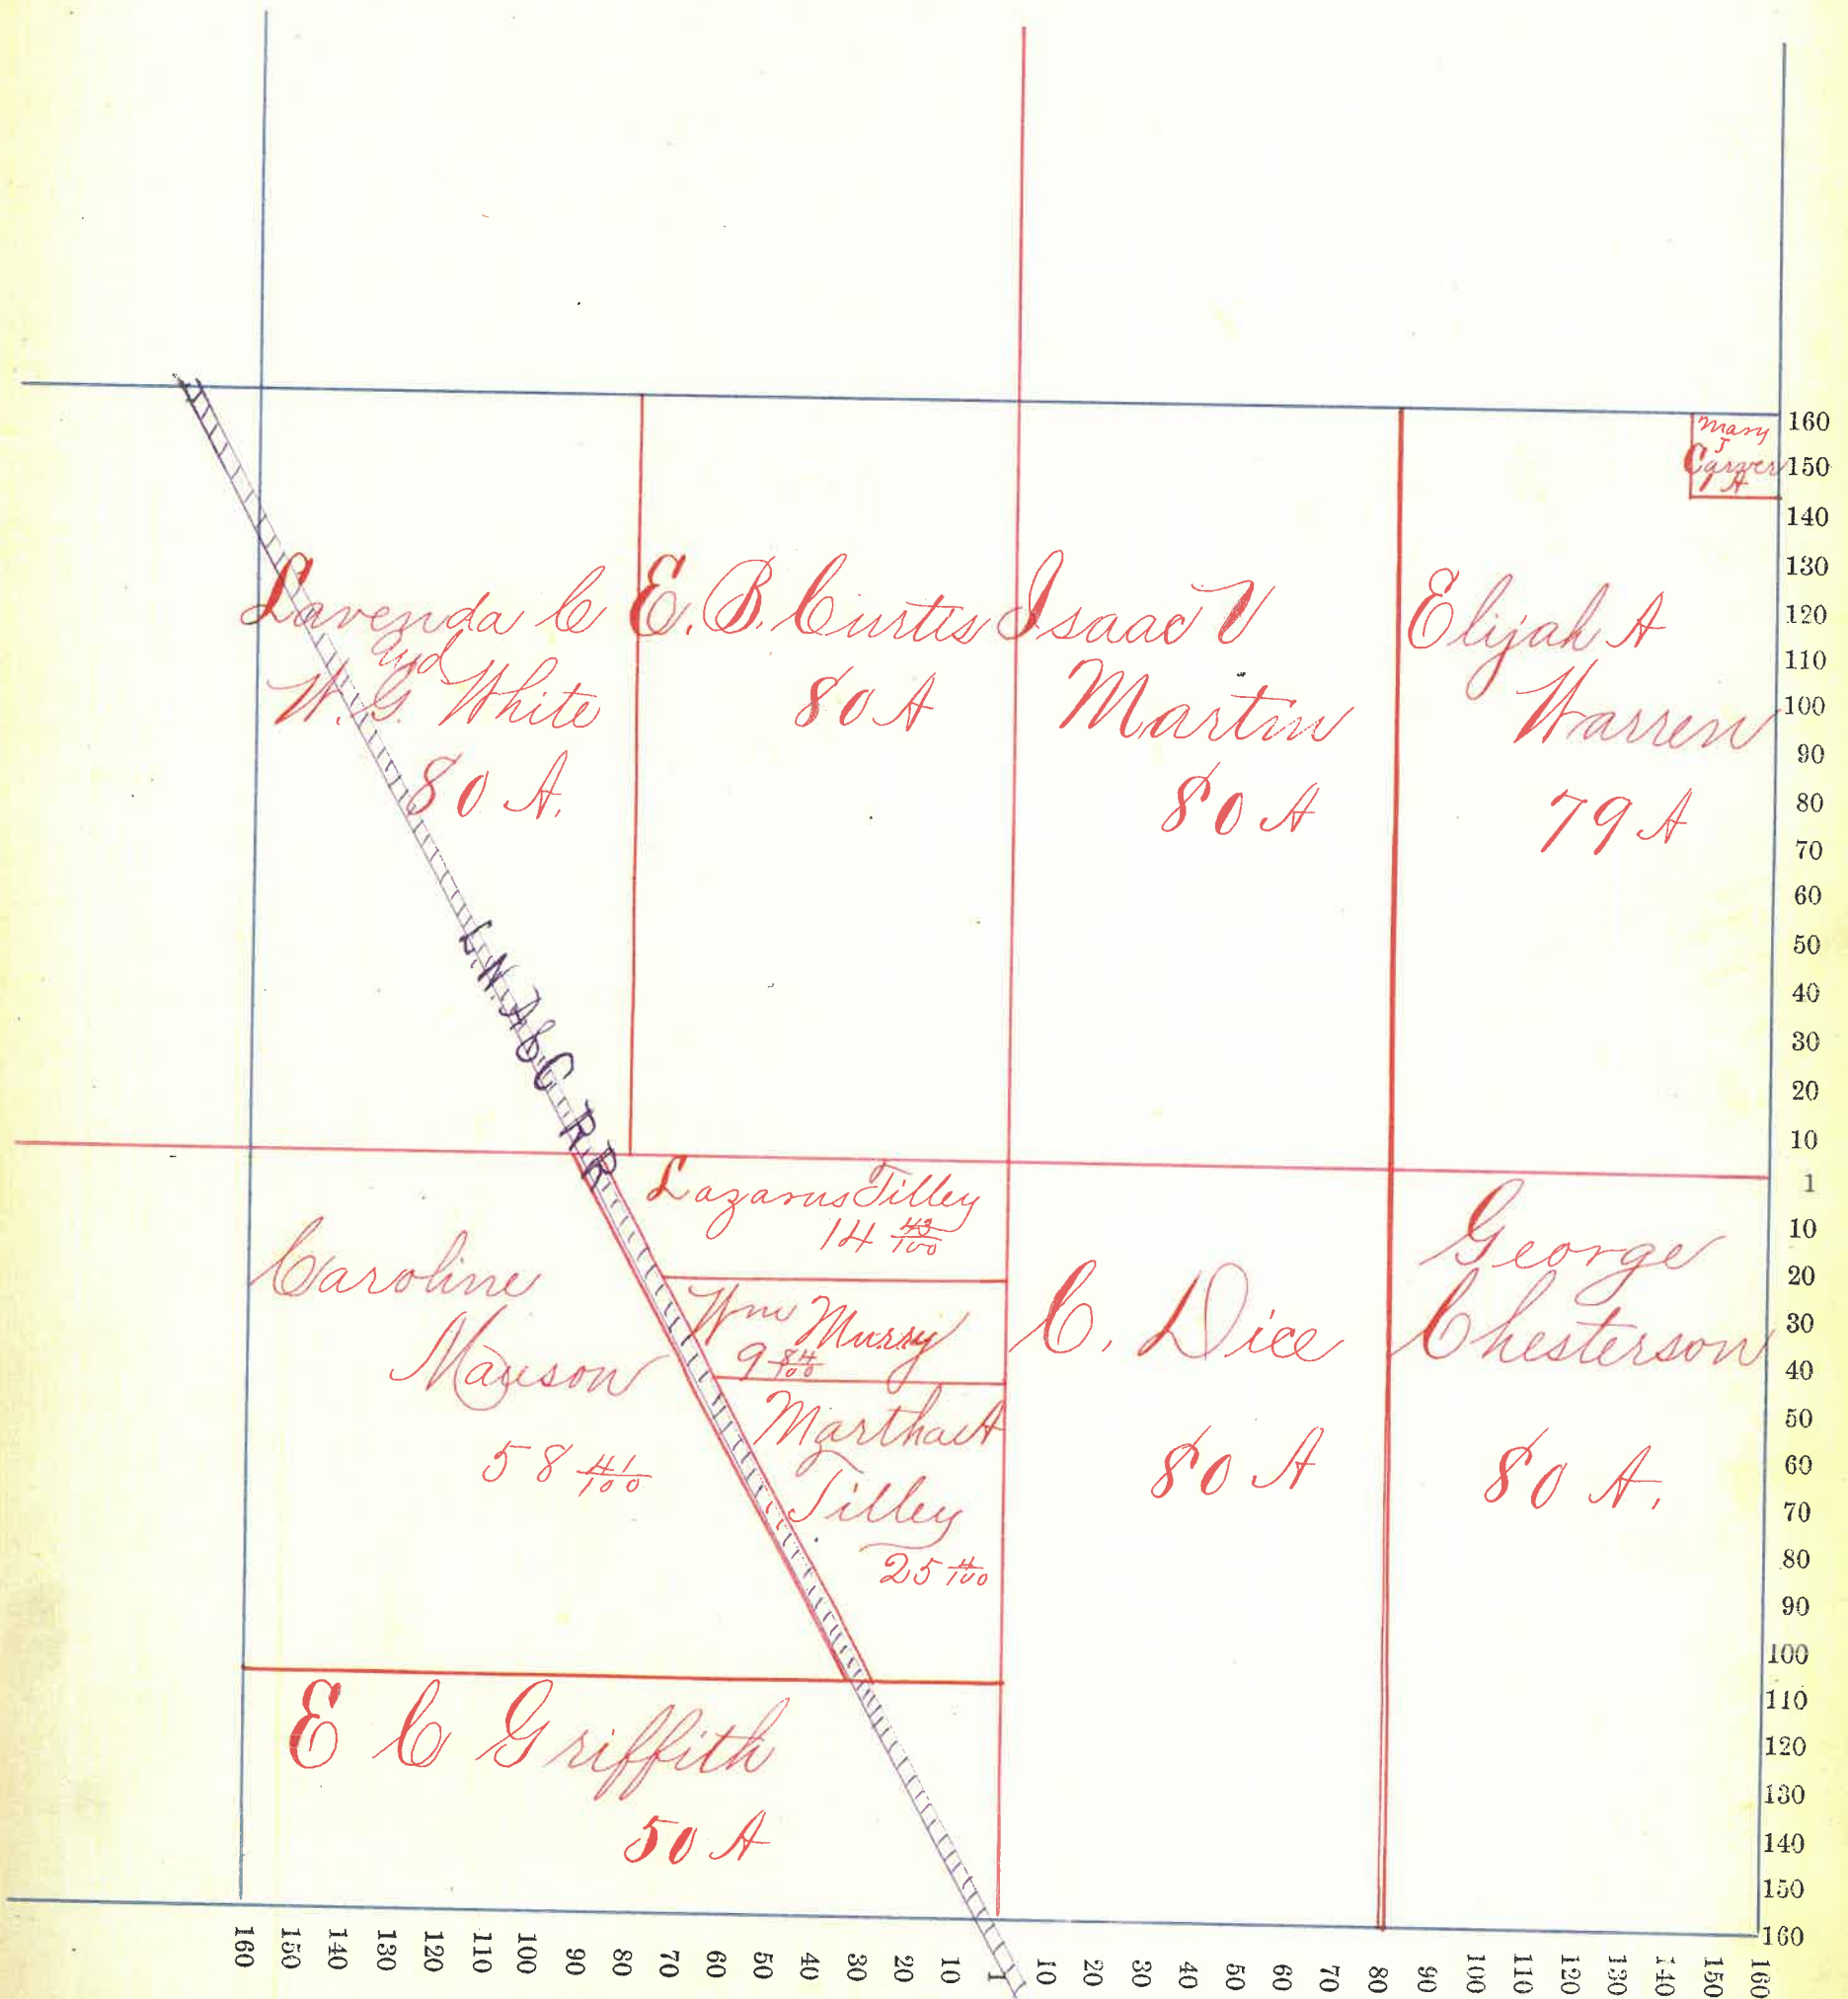 Mary
J
Carver
1 A
Lavenda C
and
W. G. White
80 A.
E. B. Curtis
80 A
Isaac V
Martin
80 A
Elijah A
Warren
79 A
L. N. A & C R R
Lazarus Tilley
14 43/100
Wm Murry
9 84/100
Martha A
Tilley
25 4/100
Caroline
58 41/100
C. Dice
80 A
George
Chesterson
80 A.
E C Griffith
50 A
160
150
140
130
120
110
100
90
80
70
60
50
40
30
20
10
1
10
20
30
40
50
60
70
80
90
100
110
120
130
140
150
160
160 150 140 130 120 110 100 90 80 70 60 50 40 30 20 10 1 10 20 30 40 50 60 70 80 90 100 110 120 130 140 150 160